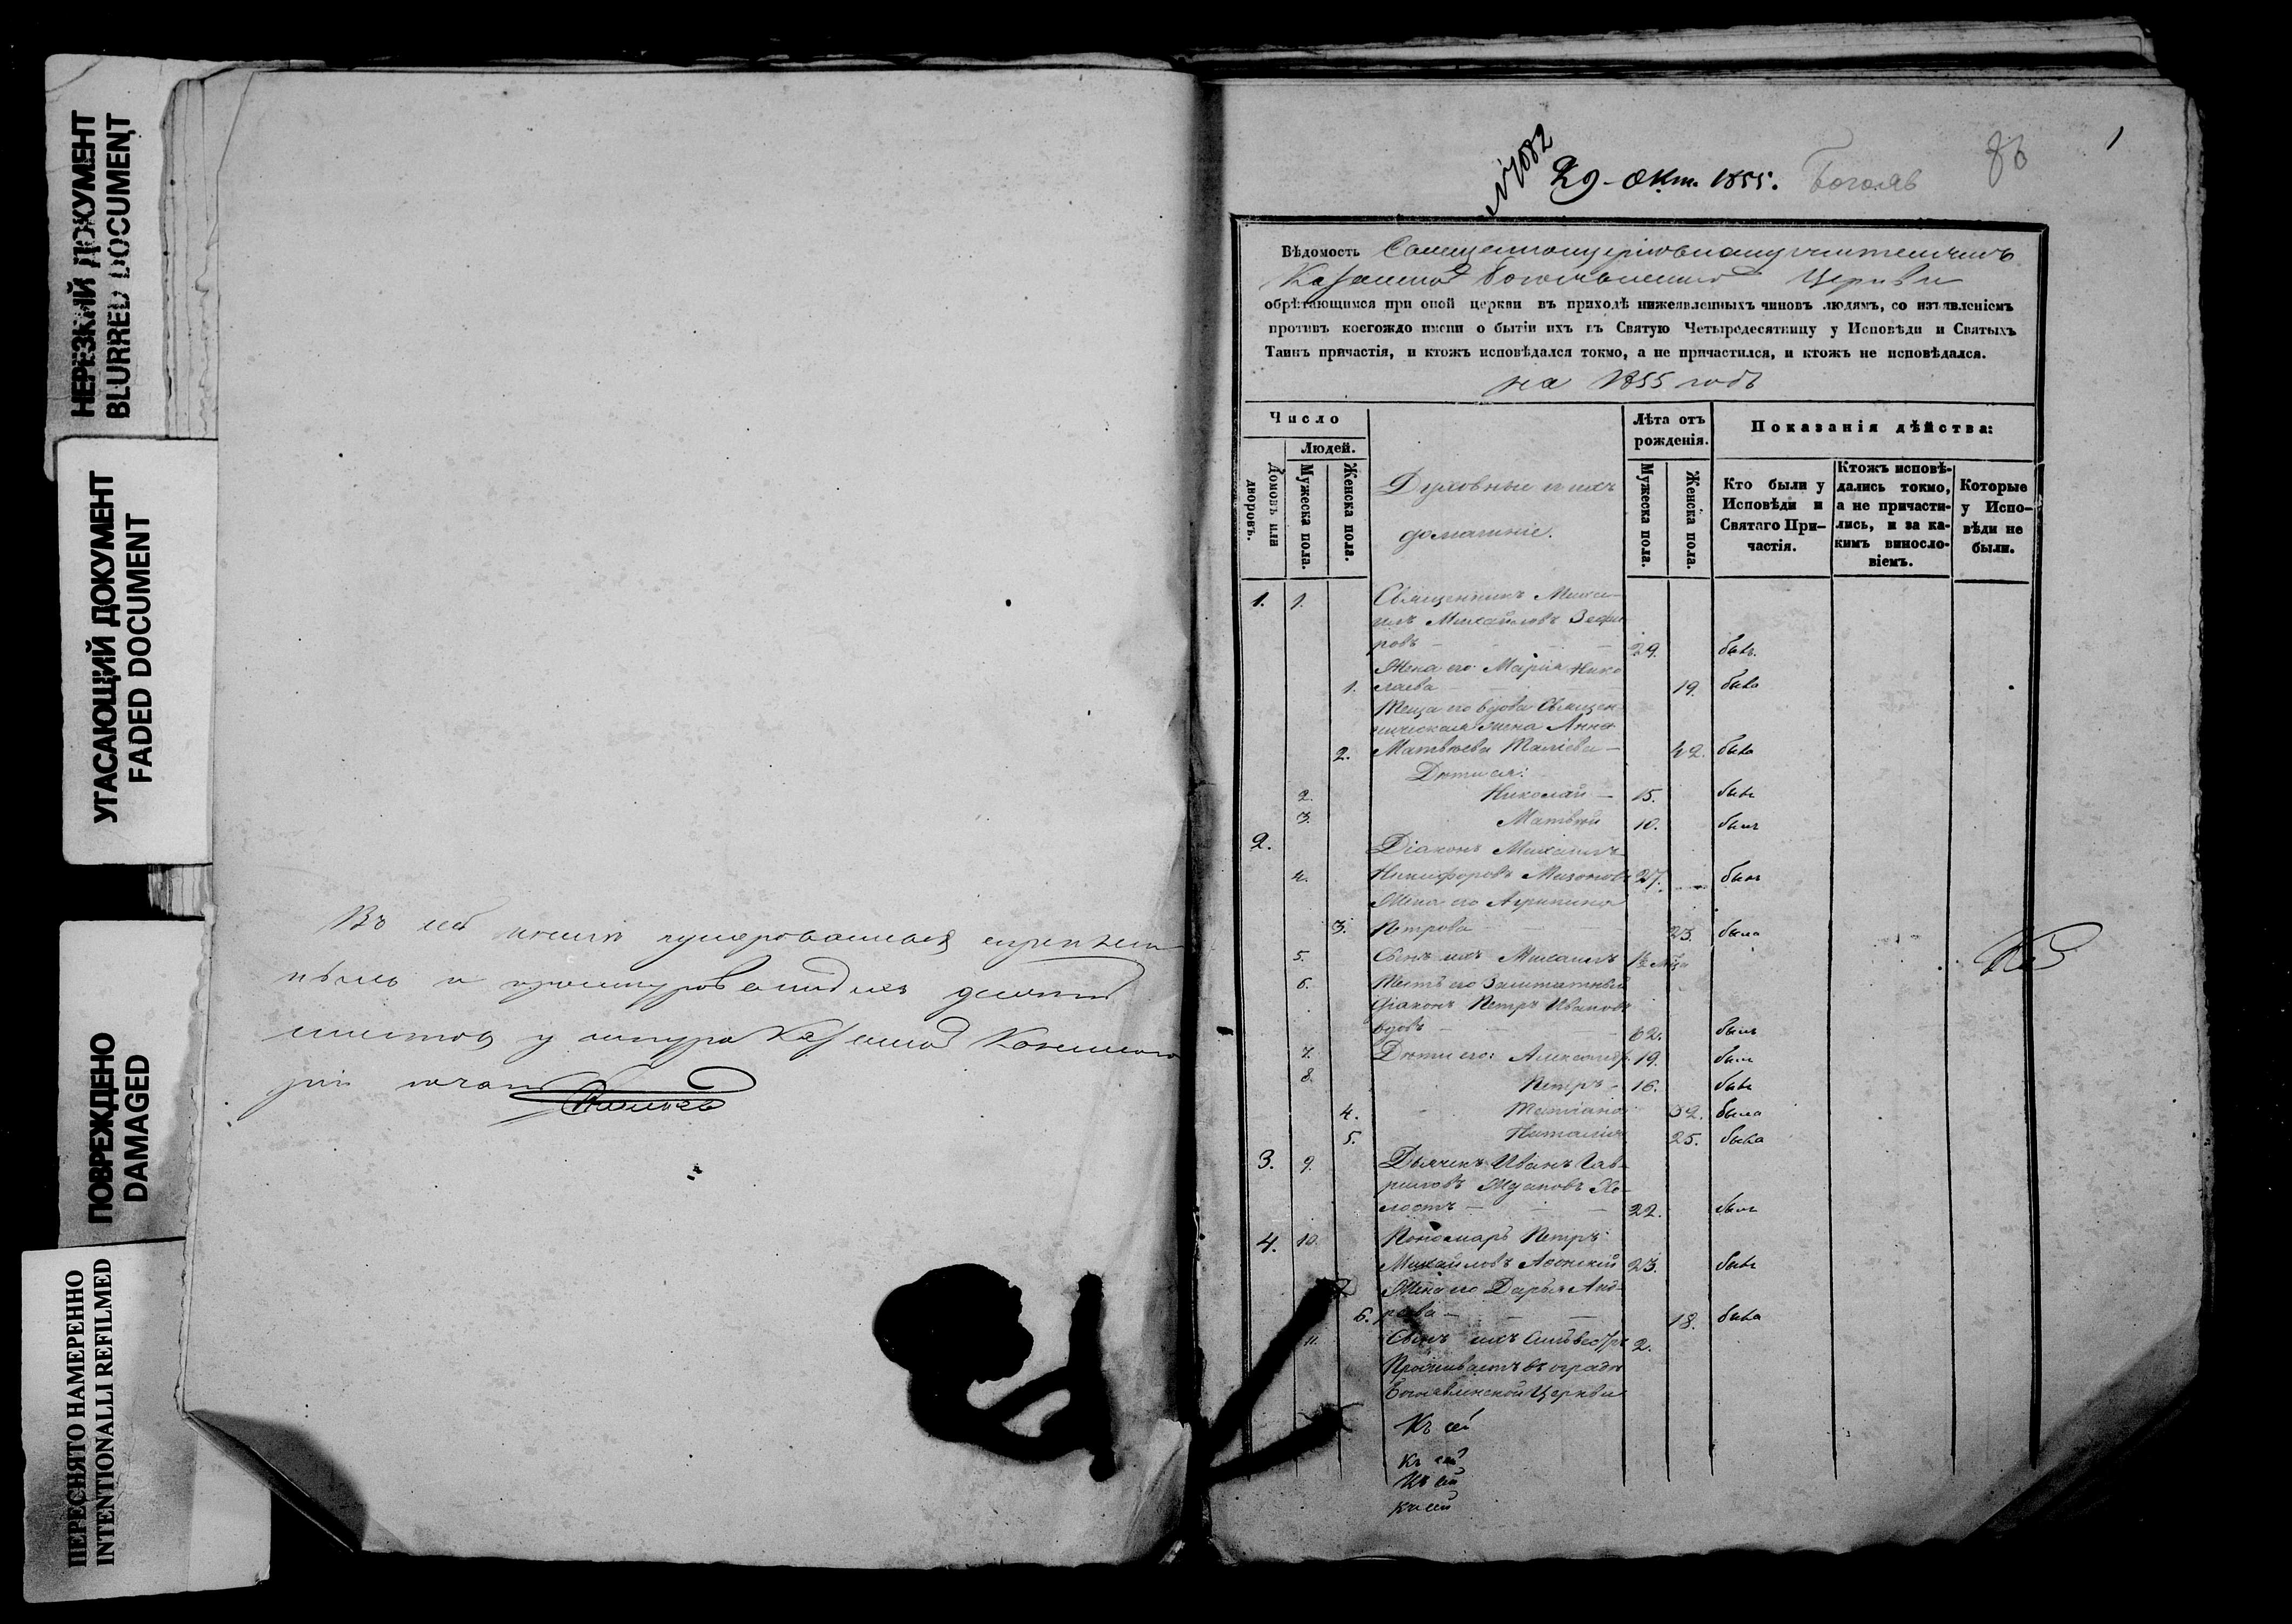 НЕРЕЗКИЙ ДОКУМЕНТ
BLURRED DOCUMENT
УГАСАЮЩИЙ ДОКУМЕНТ
FADED DOCUMENT
ПОВРЕЖДЕНО
DAMAGED
ПЕРЕСНЯТО НАМЕРЕННО
INTENTIONALLI REFILMED
Въ сей
и
листов у
1
86
№ 1082
29 Окт. 1855. Богояв
Вѣдомость
Казанской Богоявленской Церкви
обрѣтающимся при оной церкви въ приходѣ нижеявленныхъ чиновъ людямъ, со изъявленіемъ
противъ коегождо имени о бытіи ихъ въ Святую Четыредесятницу у Исповѣди и Святыхъ
Таинъ причастія, и ктожъ исповѣдался токмо, а не причастился, и ктожъ не исповѣдался.
на 1855 годъ
Число
Людей.
Домовъ или дворовъ.
Мужеска пола.
Женска пола.
Духовные и ихъ
домашніе.
Лѣта отъ рожденія.
Мужеска пола.
Женска пола.
Показанія дѣйства:
Кто были у Исповѣди и Святаго При-частія.
Ктожъ исповѣ-дались токмо, а не причасти-лись, и за ка-кимъ винosло-віемъ.
Которые у Испо-вѣди не были.
1. 1. Священникъ Миха-
илъ Михайловъ Зефи
ровъ 29. былъ
Жена его Марія Нико
1. лаева 19. была
Теща его вдова Священ
ническая жена Анна
2. Матвѣева 42. была
Дѣти ея:
2. Николай 15. былъ
3. Матвѣй 10. былъ
2. Діаконъ Михаилъ
4. Никифоровъ 27. былъ
Жена его Агрипина
3. Петрова 23. была
5. Сынъ ихъ Михаилъ
6. Тесть его Заштатный
Діаконъ Петръ Ивановъ
вдовъ 62. былъ
7. Дѣти его: Александръ 19. былъ
8. Петръ 16. былъ
4. Татіана 32. была
5. Наталія 25. была
3. 9. Дьячекъ Иванъ Гав-
риловъ Ждановъ Хо-
лостъ 22. былъ
4. 10. Пономарь Петръ
Михайловъ Аѳонскій 23. былъ
Жена его Дарья Анд-
6. реева 18. была
11. Сынъ ихъ Сильвестръ 2.
Проживаетъ въ оградѣ
Богоявленской Церкви
Къ сей
Къ сей
Къ сей
Къ сей